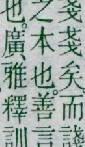 戔戔矣而諓
之本也善言
也廣雅釋訓